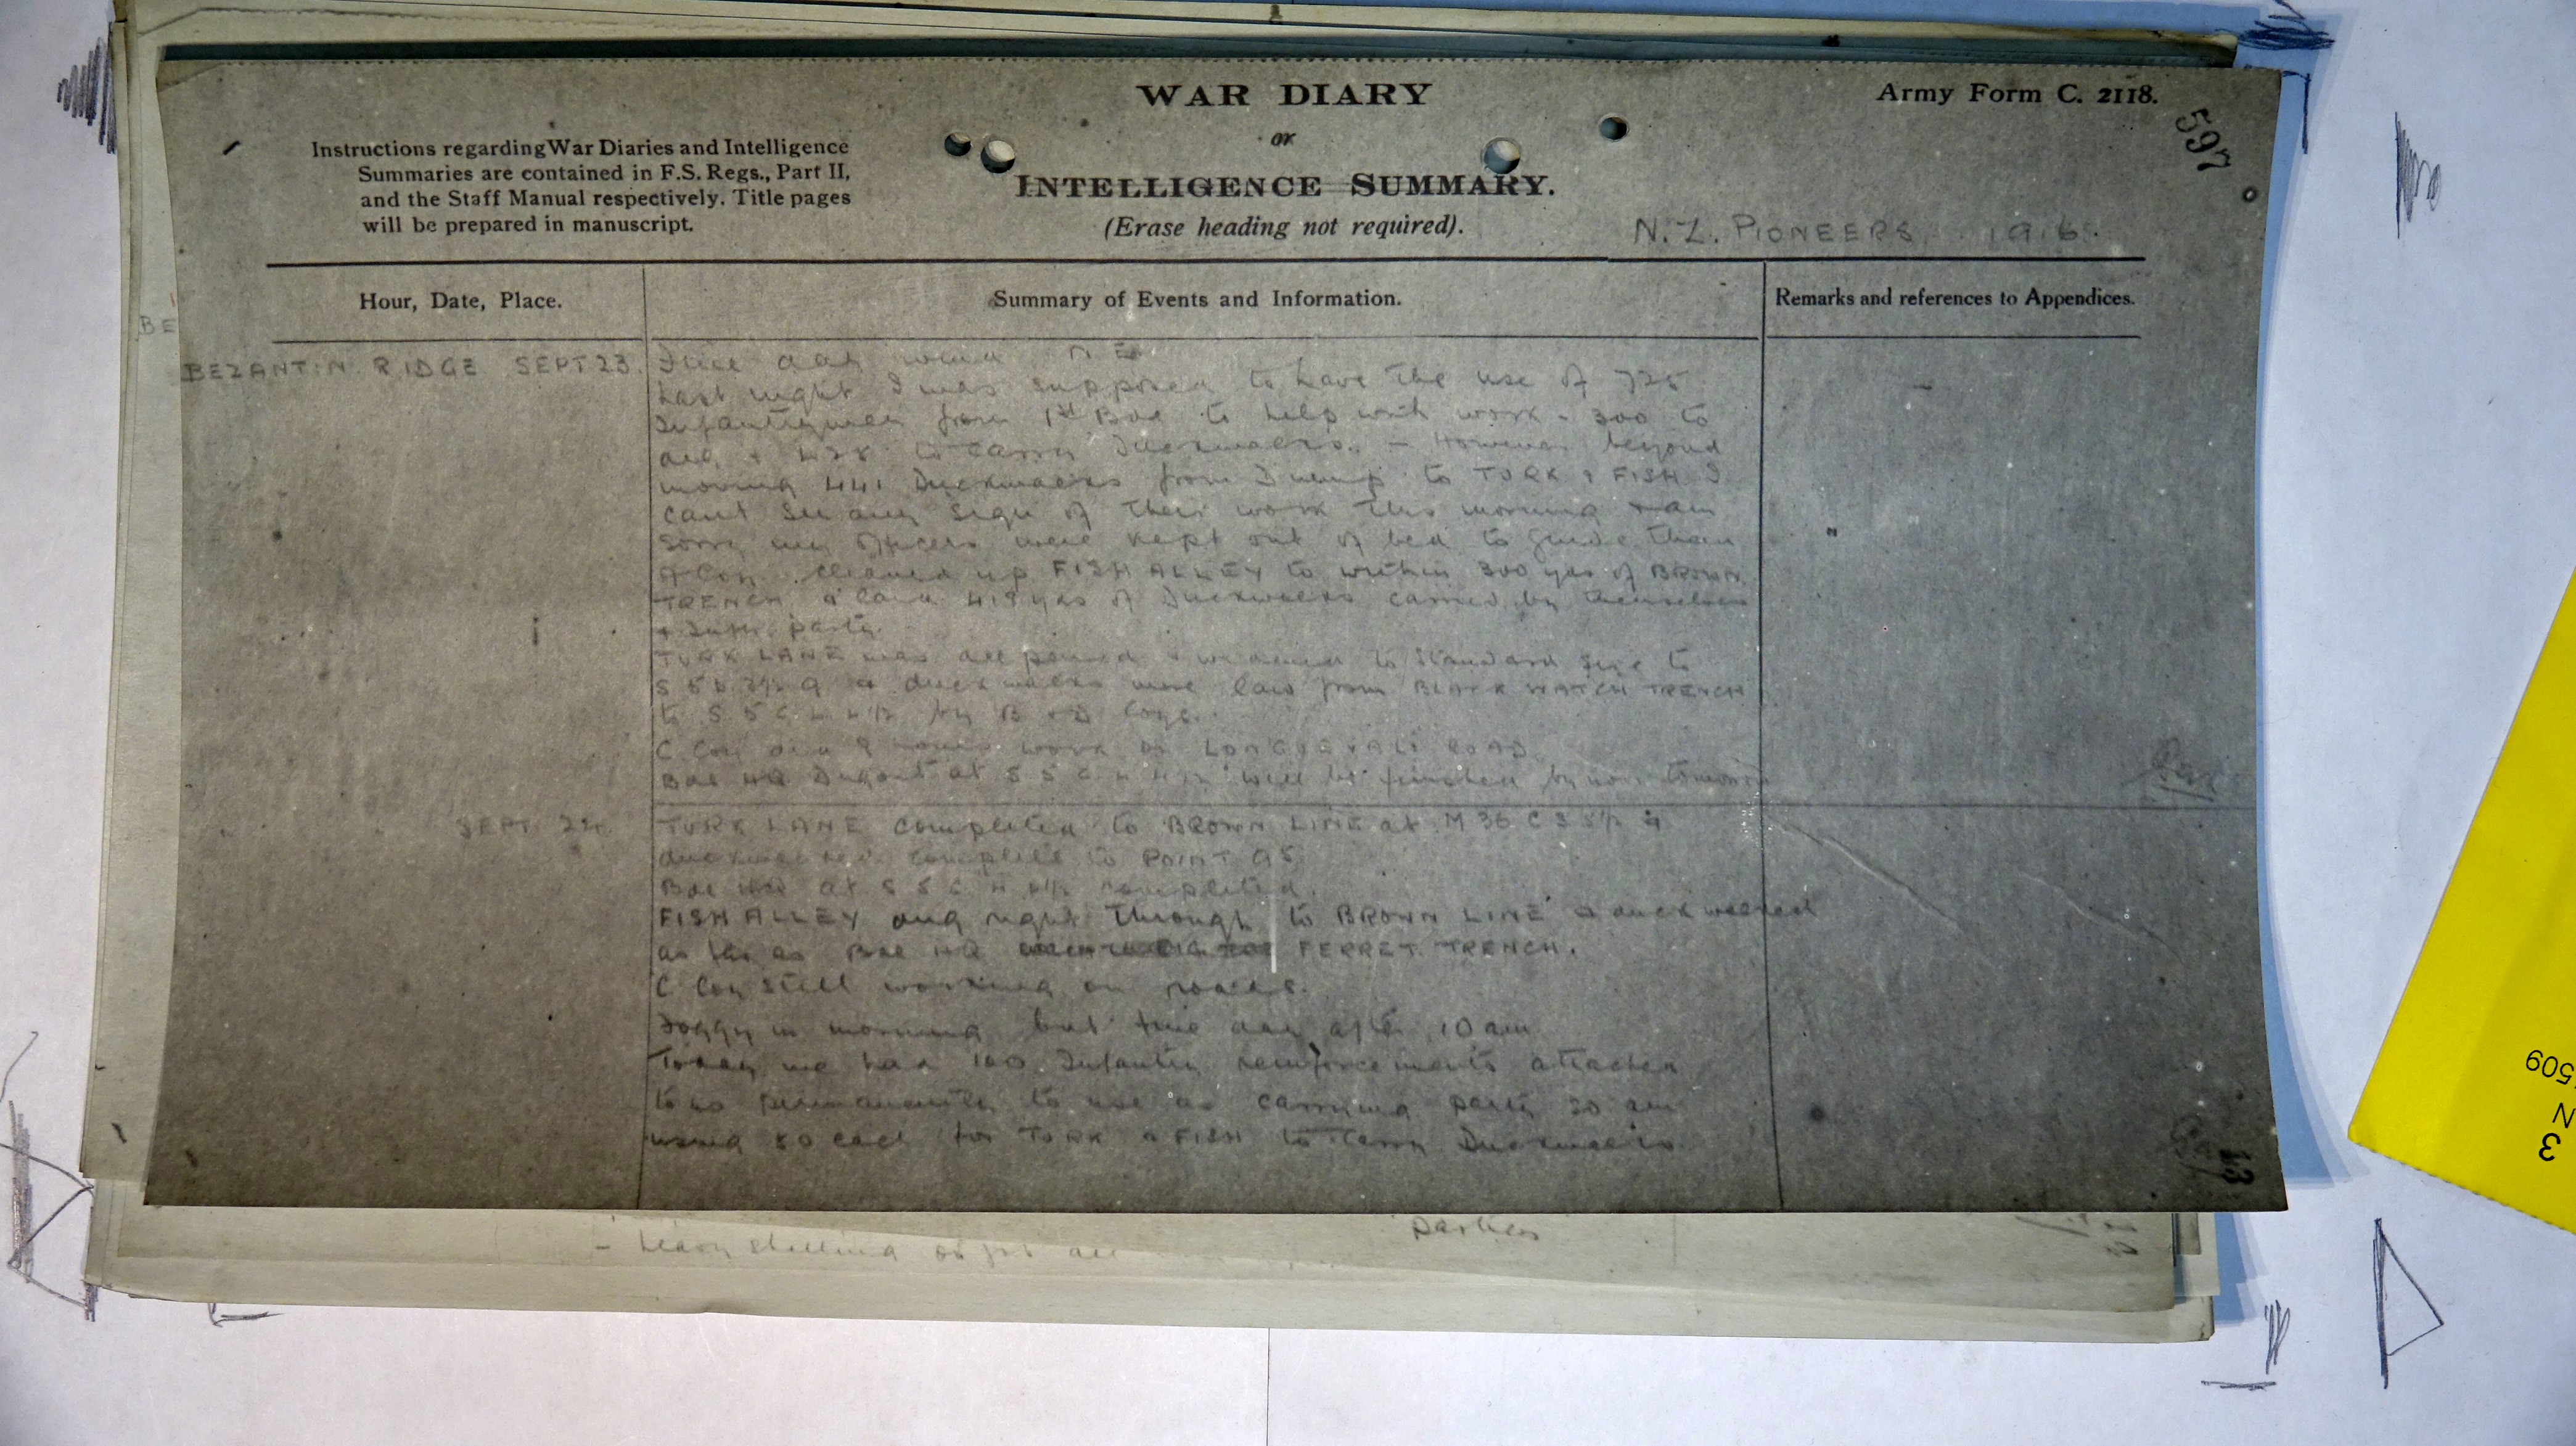 WAR DIARY
or
INTELLIGENCE SUMMARY.
(Erase heading not required).
Army Form C. 2118.
597
Instructions regarding War Diaries and Intelligence
Summaries are contained in F.S. Regs., Part II,
and the Staff Manual respectively. Title pages
will be prepared in manuscript.
N.Z. PIONEERS 1916.
Hour, Date, Place.
Summary of Events and Information.
Remarks and references to Appendices.
BE
BEZANTIN RIDGE SEPT 23.
Fine day wind N E
Last night I was supposed to have the use of 725
Infantrymen from 1st Bde to help with work - 300 to
dig + 425 to carry Duckwalks. - However beyond
moving 441 Duckwalks from Dump to TURK & FISH I
cant see any sign of their work this morning & am
sorry my officers were kept out of bed to guide them
A Coy cleaned up FISH ALLEY to within 300 yds of BROWN
TRENCH & laid 419 yds of Duckwalks carried by themselves
+ Infty party.
TURK LANE was deepened & widened to standard size to
S 5 b & duckwalks were laid from BLACK WATCH TRENCH
to S 5 C 4 4½ by B & D Coys.
C Coy did 9 hours work on LONGUEVALL ROAD.
Bde HQ Dugout at S 5 C 4 4½ will be finished by noon tomorrow
SEPT 24.
TURK LANE completed to BROWN LINE at M 36 C 3 5½ &
duckwalked complete to POINT 95
Bde HQ at S 5 C 4 4½ completed.
FISH ALLEY dug right through to BROWN LINE & duckwalked
as far as Bde HQ FERRET TRENCH.
C Coy still working on roads.
Foggy in morning but fine day after 10 am
Today we had 100 Infantry reinforcements attached
to us permanently to use as carrying party so am
using 50 each for TURK & FISH to carry Duckwalks.
13
parties
- heavy shelling
509
N
3